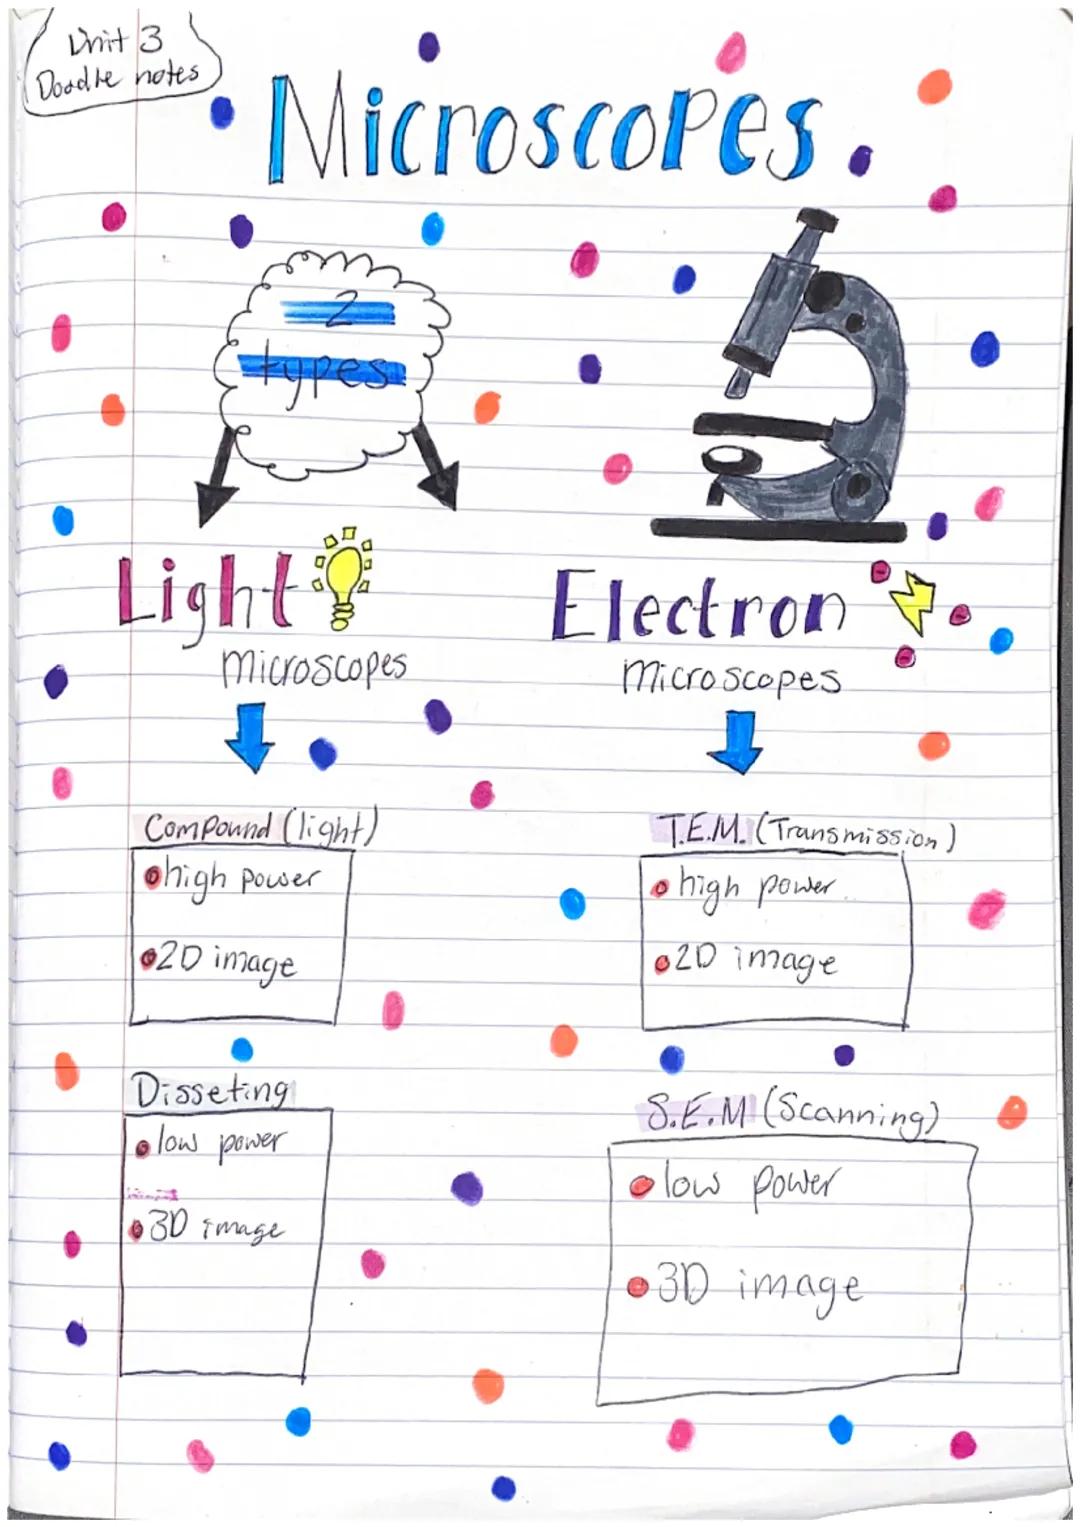 Unit 3
Doodle notes
Microscopes
2
types
Light
microscopes
Electron
microscopes
Compound (light)
high power
2D image
T.E.M. (Transmission)
high power
2D image
Disseting
low power
3D image
S.E.M (Scanning)
low power
3D image